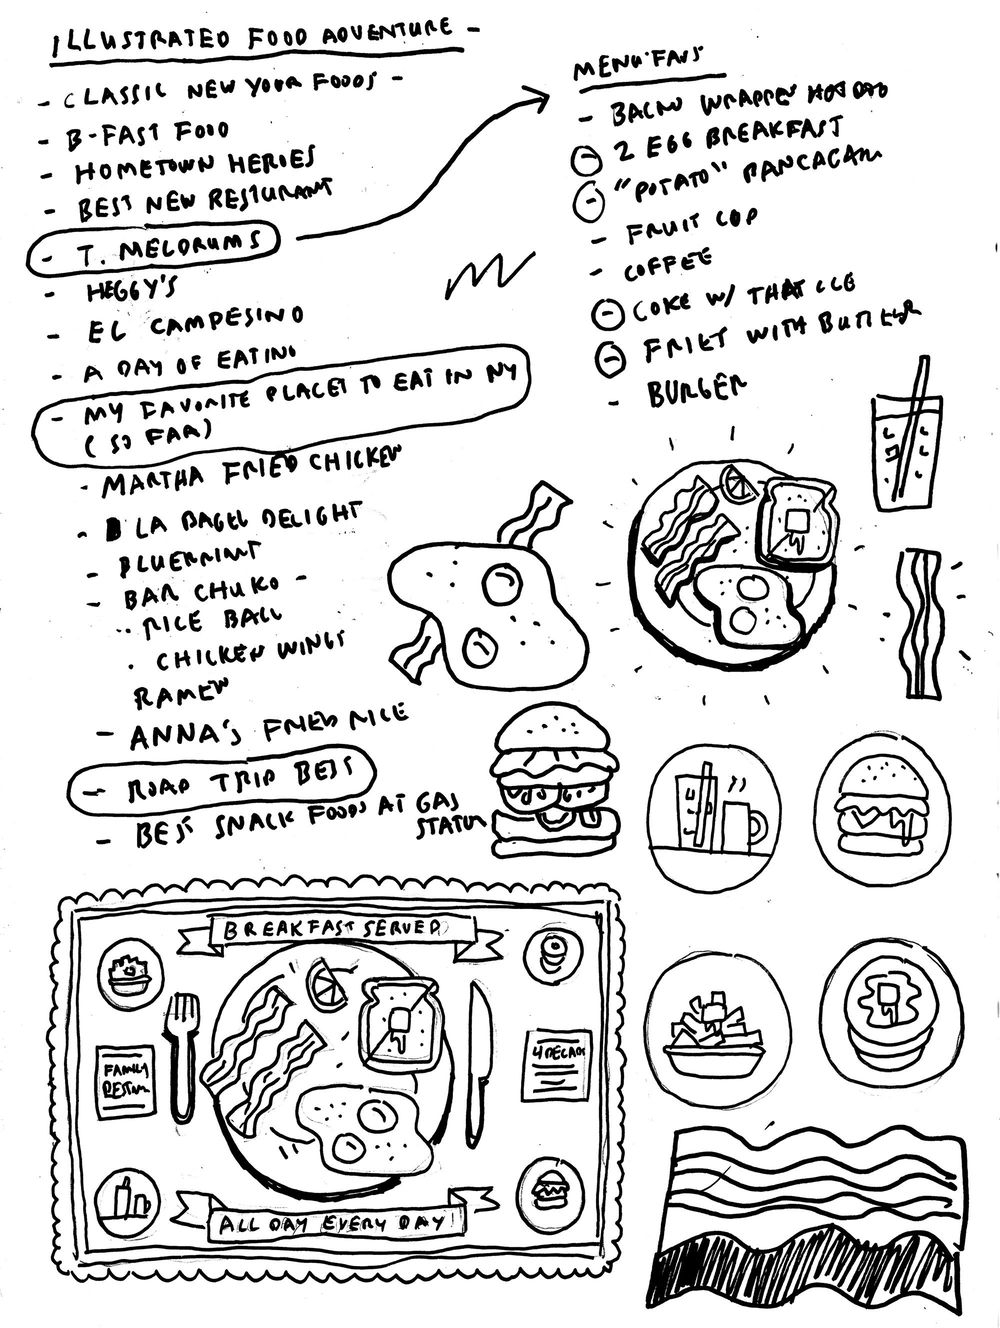 ILLUSTRATED FOOD ADVENTURE -
- CLASSIC NEW YORK FOODS -
- B-FAST FOOD
- HOMETOWN HEROES
- BEST NEW RESTURANT
- T. MELDRUMS
- HEGGY'S
- EL CAMPESINO
- A DAY OF EATING
- MY FAVORITE PLACES TO EAT IN NY
( SO FAR)
- MARTHA FRIED CHICKEN
- LA BAGEL DELIGHT
- BLUEPRINT
- BAR CHUKO -
.. RICE BALL
. CHICKEN WINGS
RAMEN
- ANNA'S FRIED RICE
- ROAD TRIP BEST
- BEST SNACK FOODS AT GAS
STATION
MENU FAVS
- BACON WRAPPED HOT DOG
- 2 EGG BREAKFAST
- "POTATO"
- FRUIT CUP
- COFFEE
- COKE W/ THAT ICE
- FRIES WITH BUTTER
- BURGER
BREAKFAST SERVED
FAMILY
RESTUR
4 DECADE
ALL DAY EVERY DAY!